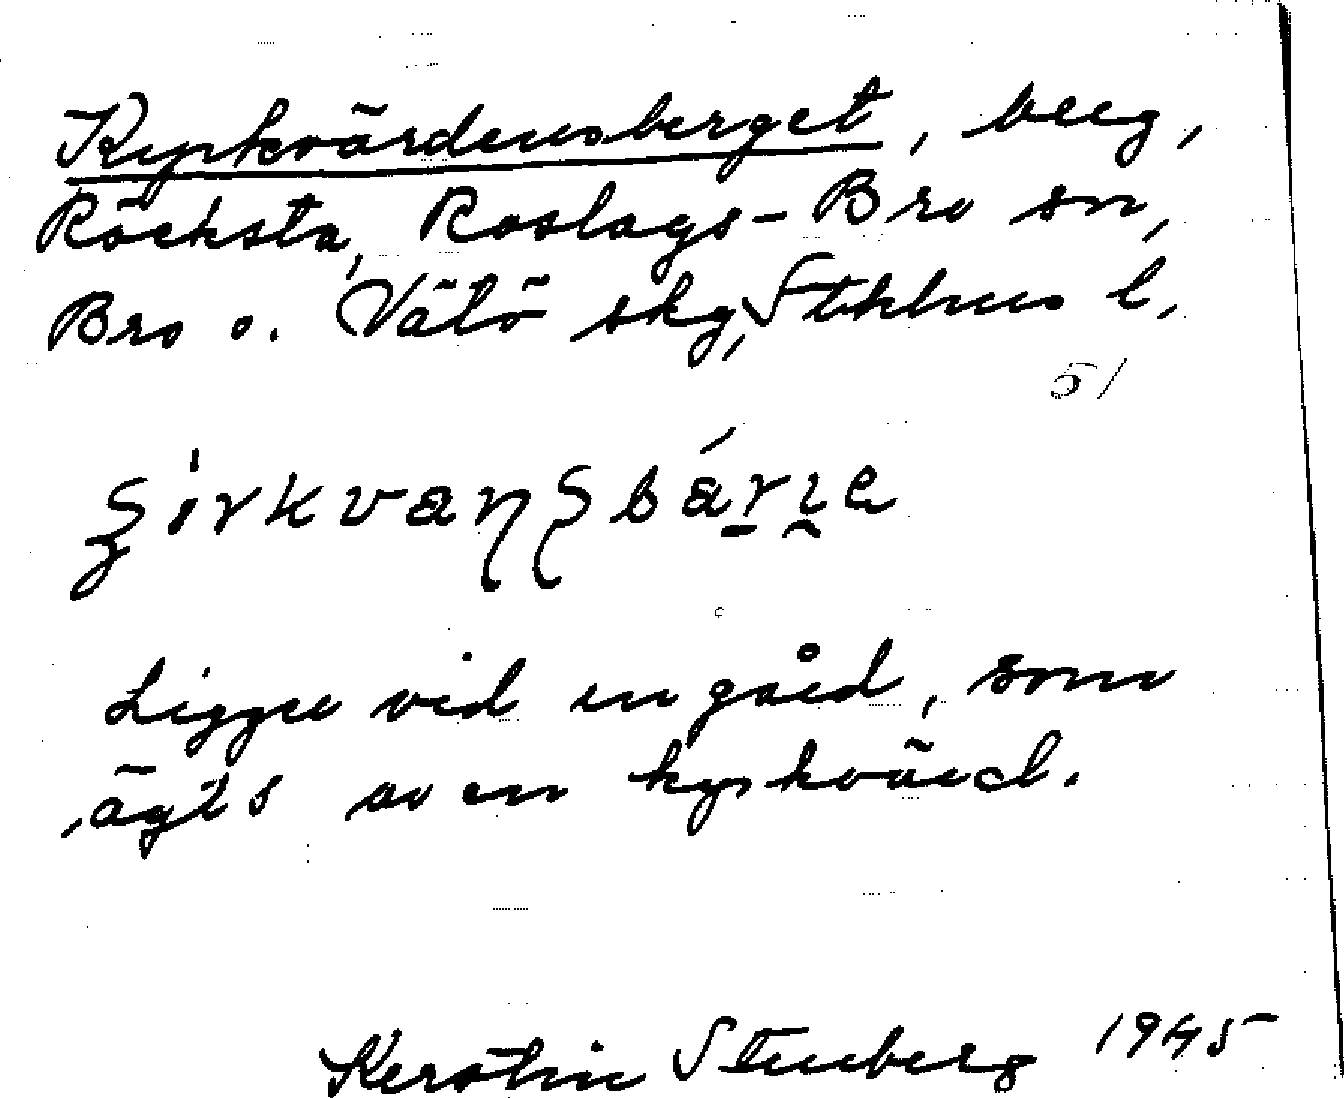 Kyrkvärdensberget, berg,
Röcksta, Roslags-Bro sn,
Bro o. Vätö skg, Stkhms l,
51
Ligger vid en gård, som
ägts av en kyrkvärd.
Kerstin Stenberg 1945